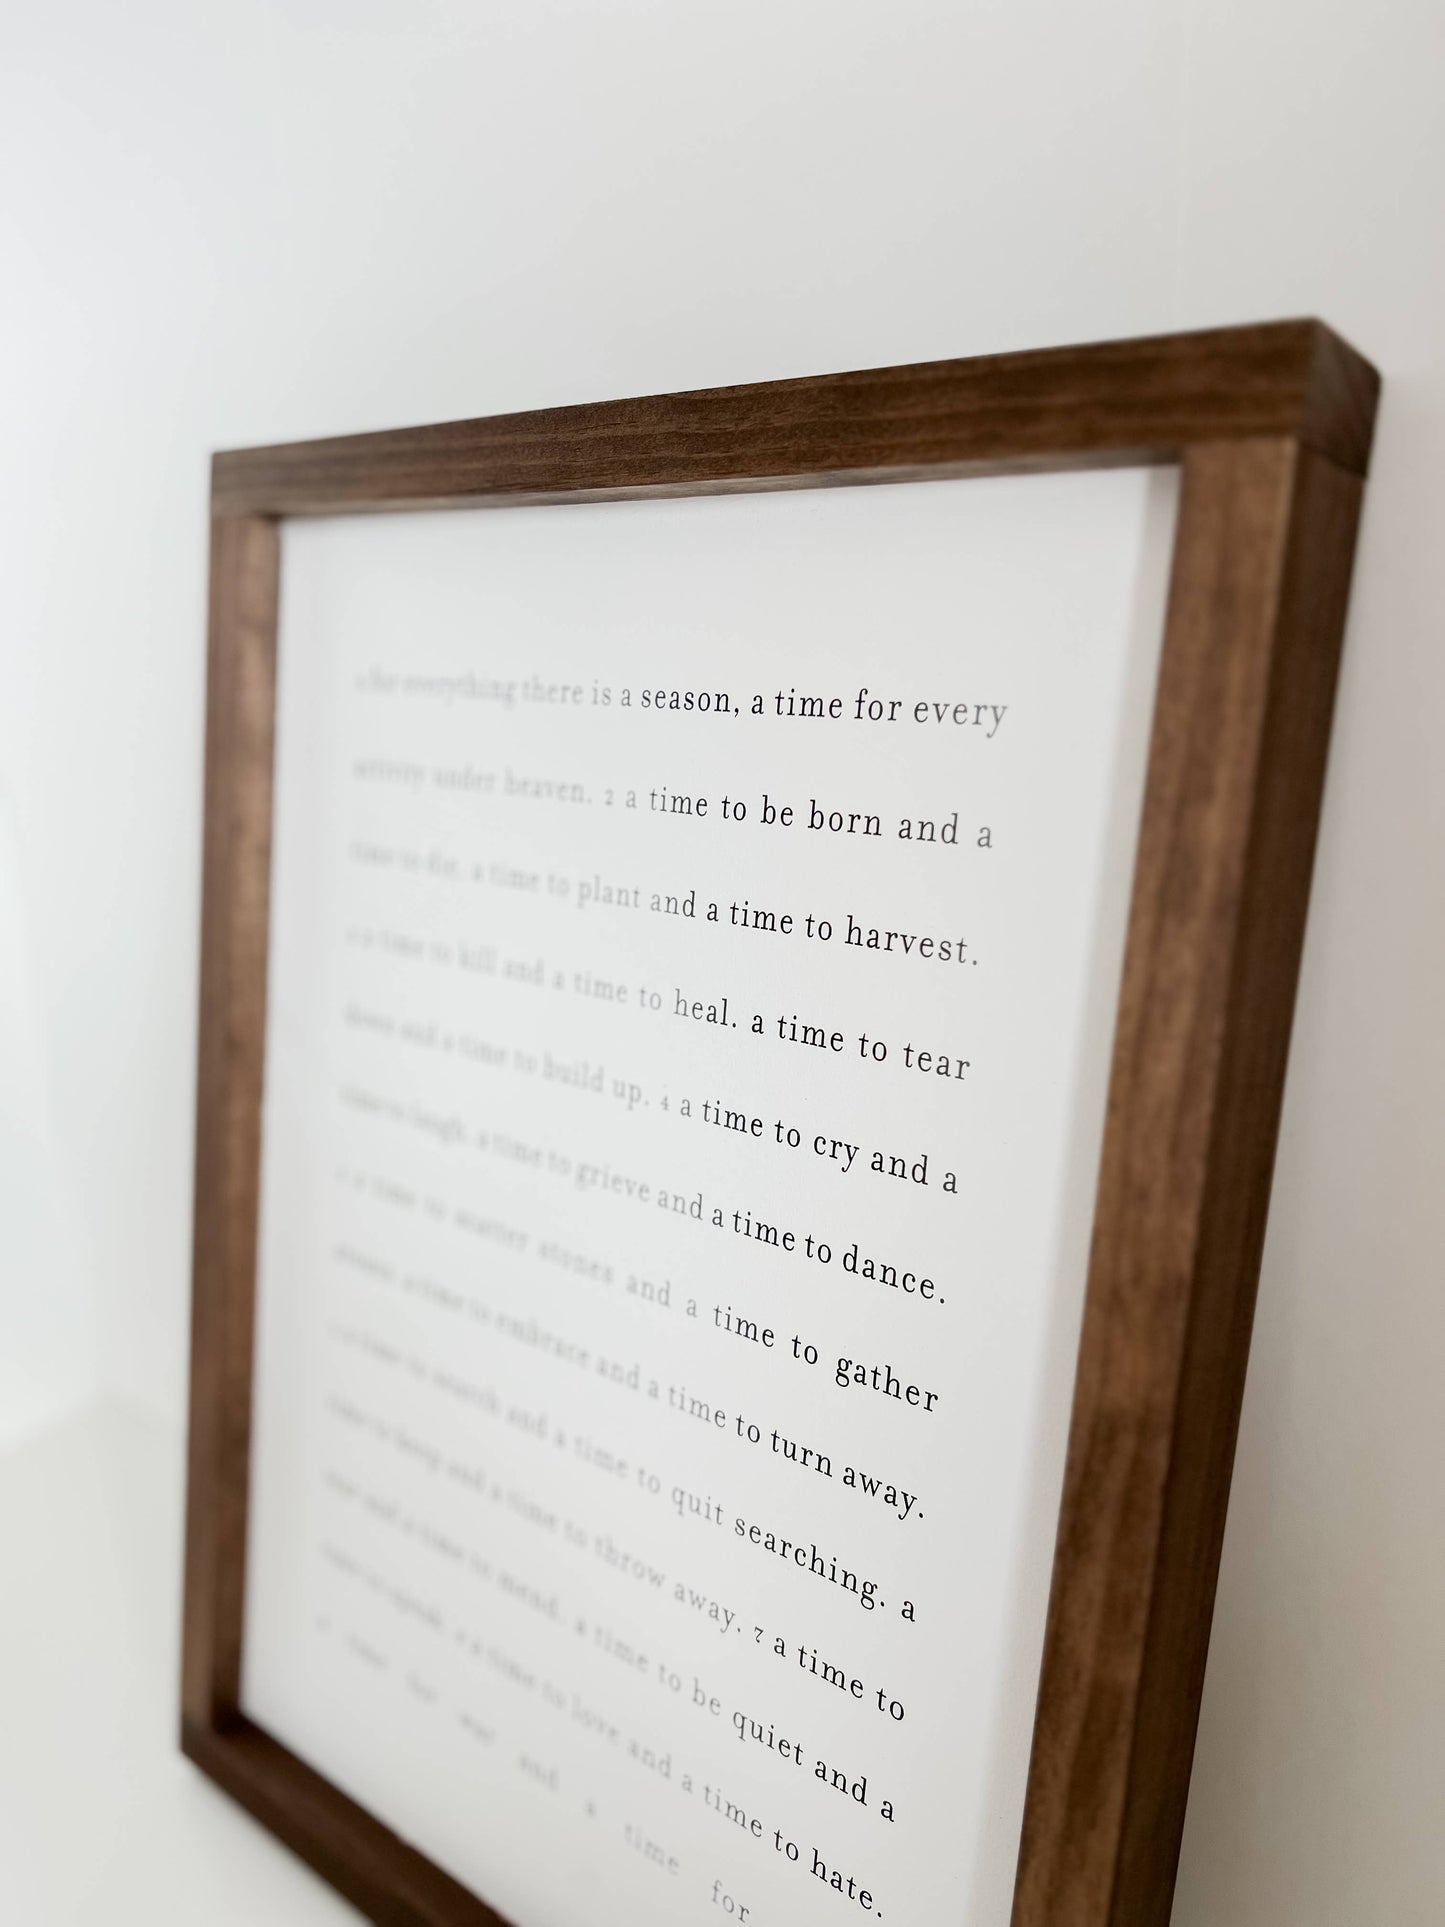 for everything there is a season, a time for every
activity under heaven. 2 a time to be born and a
time to die. a time to plant and a time to harvest.
3 a time to kill and a time to heal. a time to tear
down and a time to build up. 4 a time to cry and a
time to laugh. a time to grieve and a time to dance.
5 a time to scatter stones and a time to gather
stones. a time to embrace and a time to turn away.
6 a time to search and a time to quit searching. a
time to keep and a time to throw away. 7 a time to
tear and a time to mend. a time to be quiet and a
time to speak. 8 a time to love and a time to hate.
a time for war and a time for